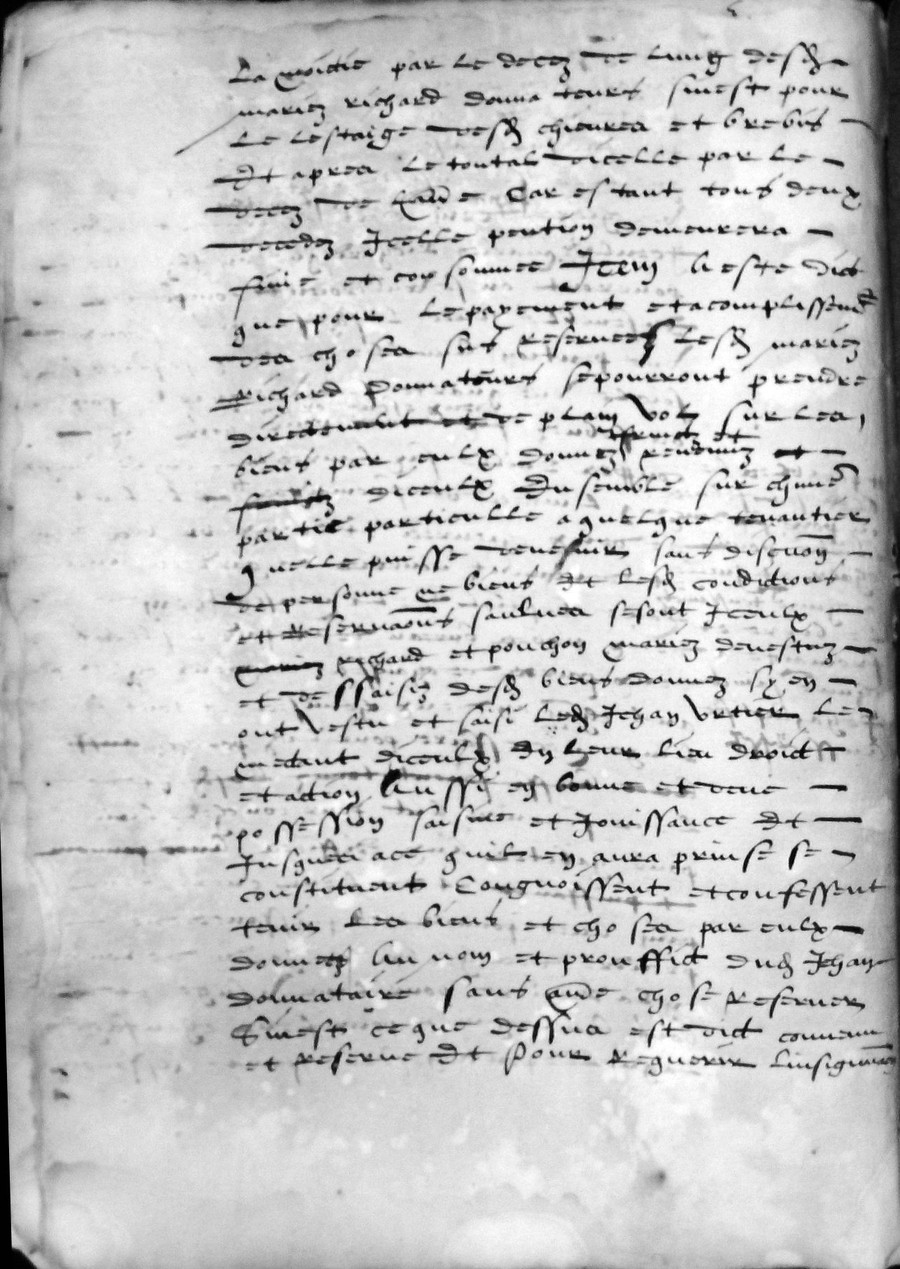 La moictie par le decez de lung desd
mariez richard donnateurs sinest pour
le lestaige desd chieures et brebis
Et apres le toutal dicelle par le
decez de laue Car estant tous deux
decedez Icelle pention demeurera
finie et consommee Item a este dict
que pour le payement et acomplissemt
des choses sus reservees lesd mariez
Richard Donnateurs se pourront prendre
directement et de plain vol sur les
biens par eulx donnez fruictz et revenuz et
fruictz diceulx Ensemble sur chune
partie particulle a quelque tenantier
quelle puisse devenir sans discuon
de personne ne biens Et lesd condictions
et Reservaons saulves se sont Iceulx
mariez richard et pouchon mariez devestuz
et dessaisiz desd biens donnez sy en
ont vestu et saisi led Jehan vrtier le
mectant diceulx En leur lieu droict
et action Aussi en bonne et deue
possession saisine et Jouissance Et
Jusques ace quil en aura prinse se
constituent Congnoissent et confessent
tenir les biens et choses par eulx
donnez Au nom et prouffict dud Jehan
donnataire sans aue chose Reserver
Sinest ce que dessus est dict convenu
et Reserve Et Pour Requerir linsignuaon